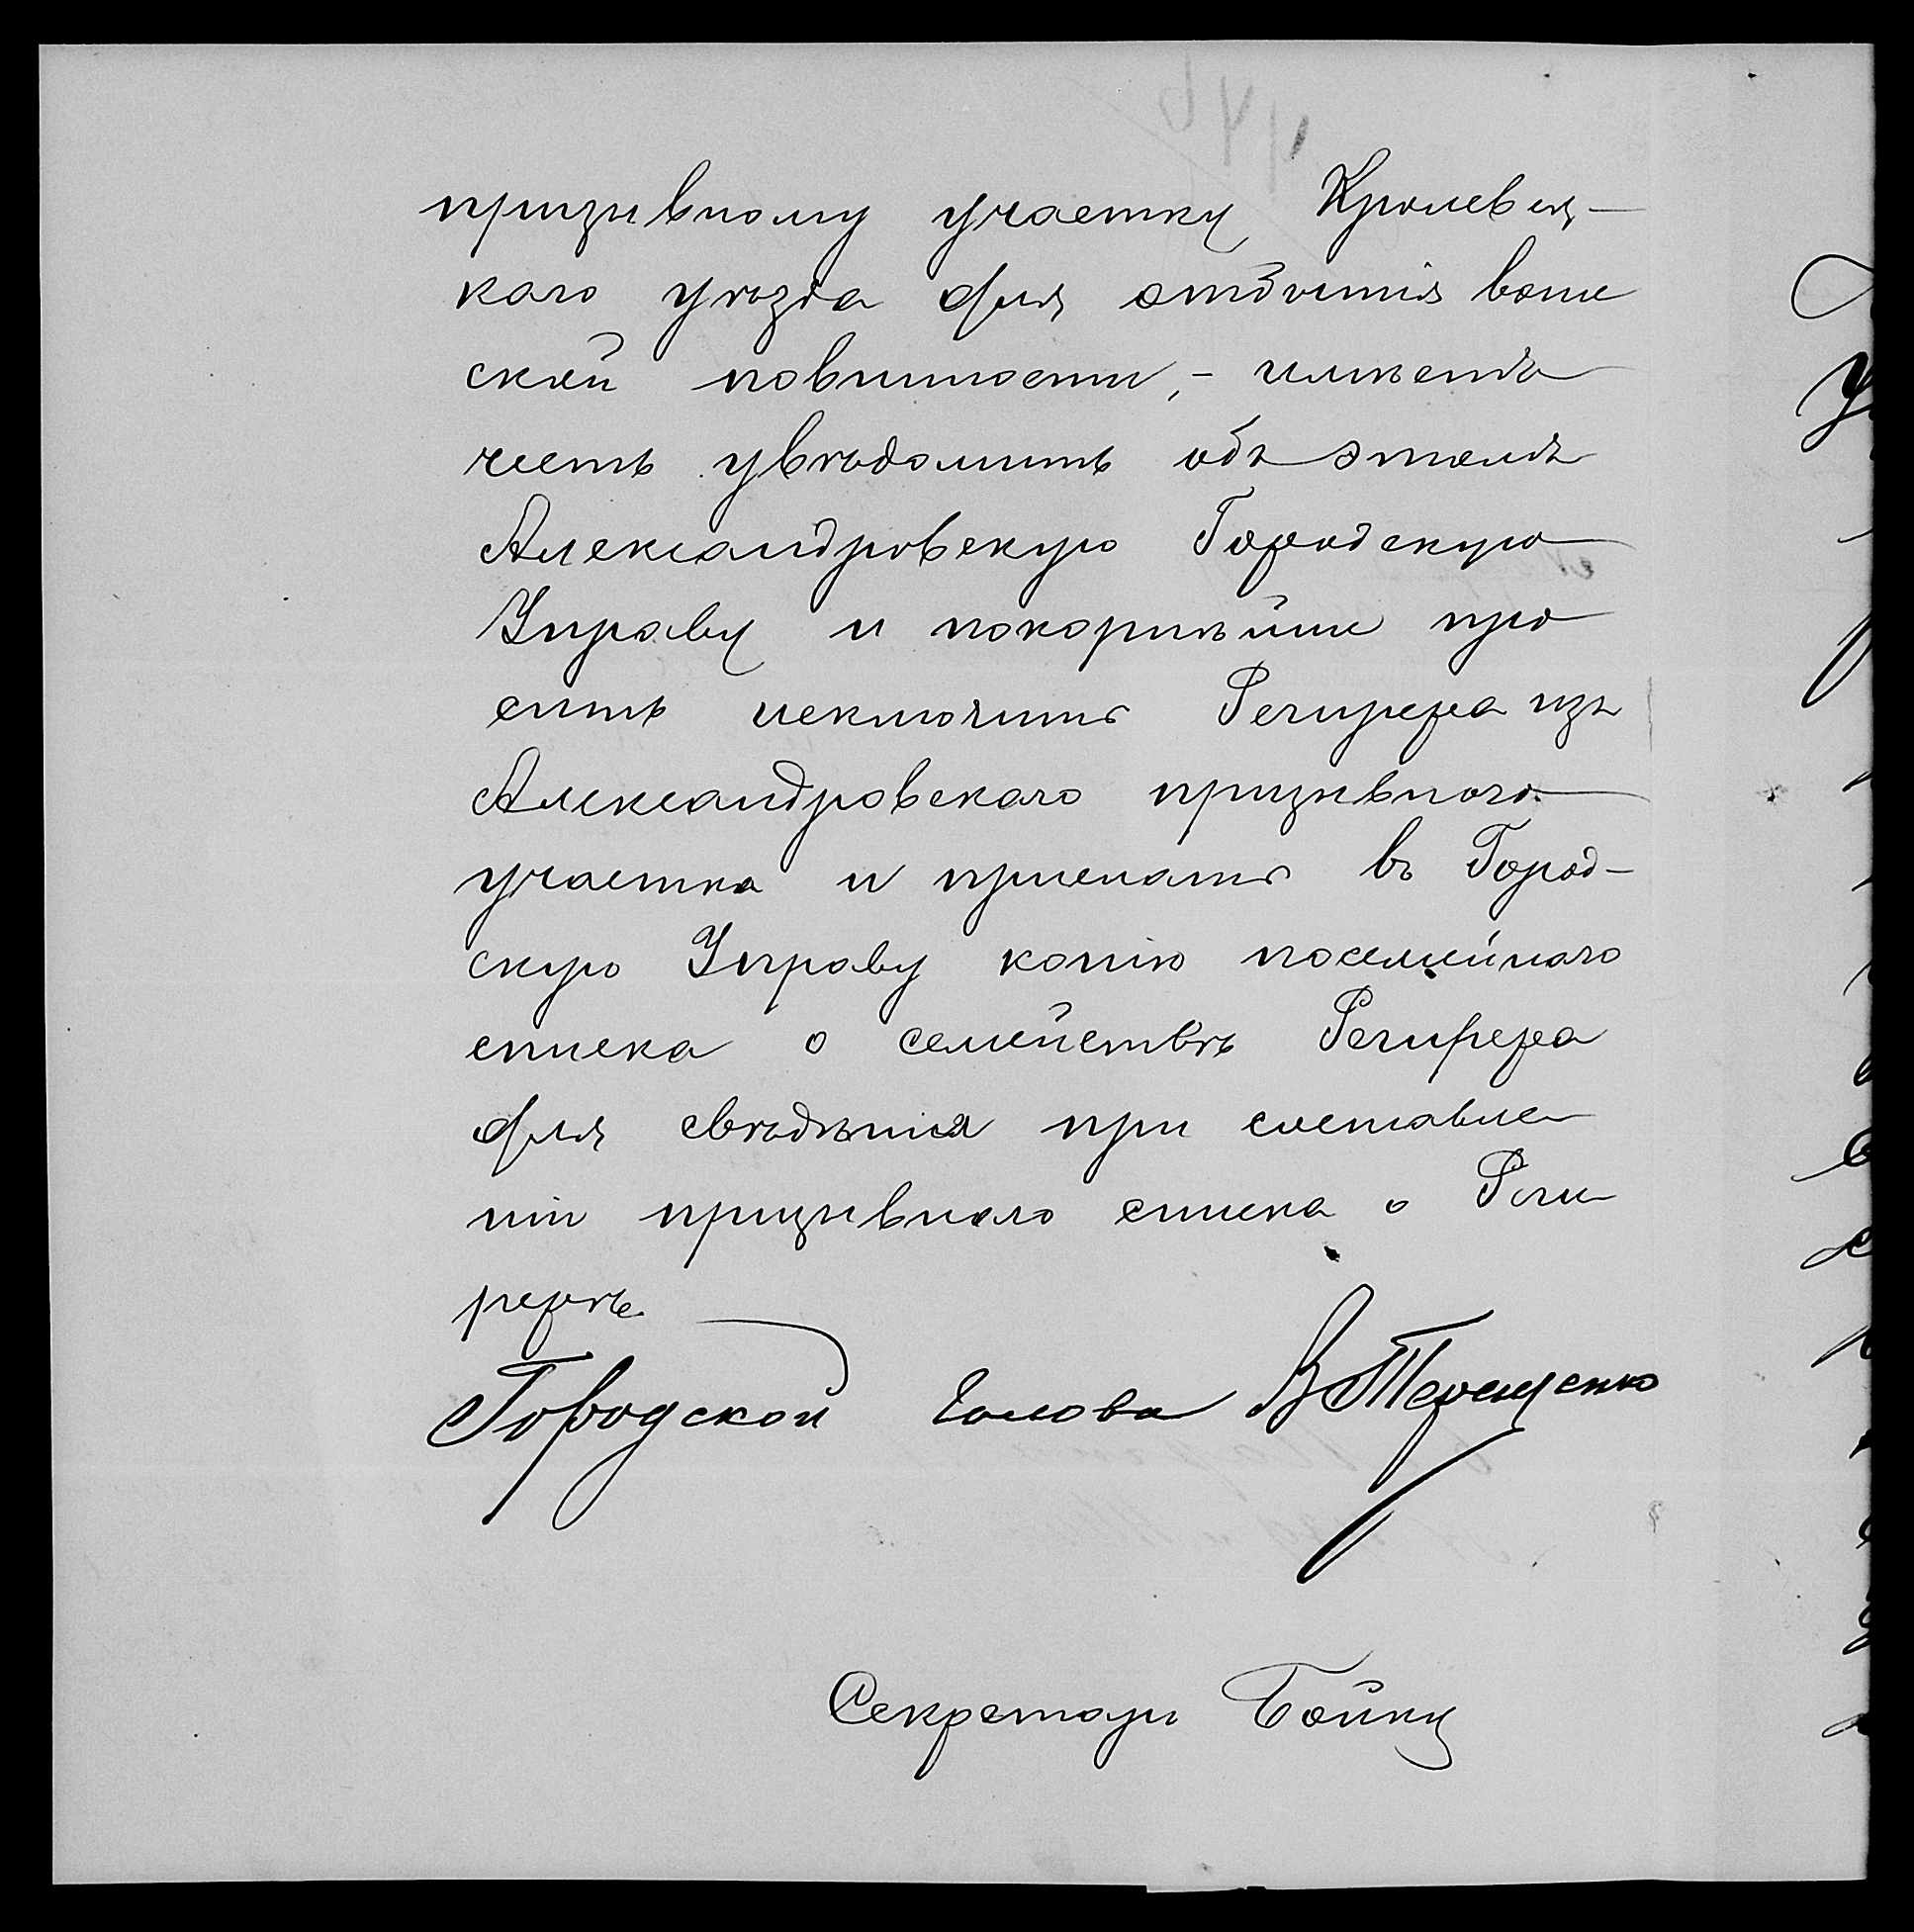 призывному участку Кролевец-
каго уѣзда для отбытія воин
ской повинности, - имѣетъ
честь увѣдомить объ этомъ
Александровскую Городскую
Управу и покорнѣйше про
ситъ исключить Регирера изъ
Александровскаго призывного
участка и прислать въ Город-
скую Управу копію посемейнаго
списка о семействѣ Регирера
для свѣдѣнія при составле
ніи призывного списка о Реги
рерѣ.
Городской Голова В Терещенко
Секретарь Бойку